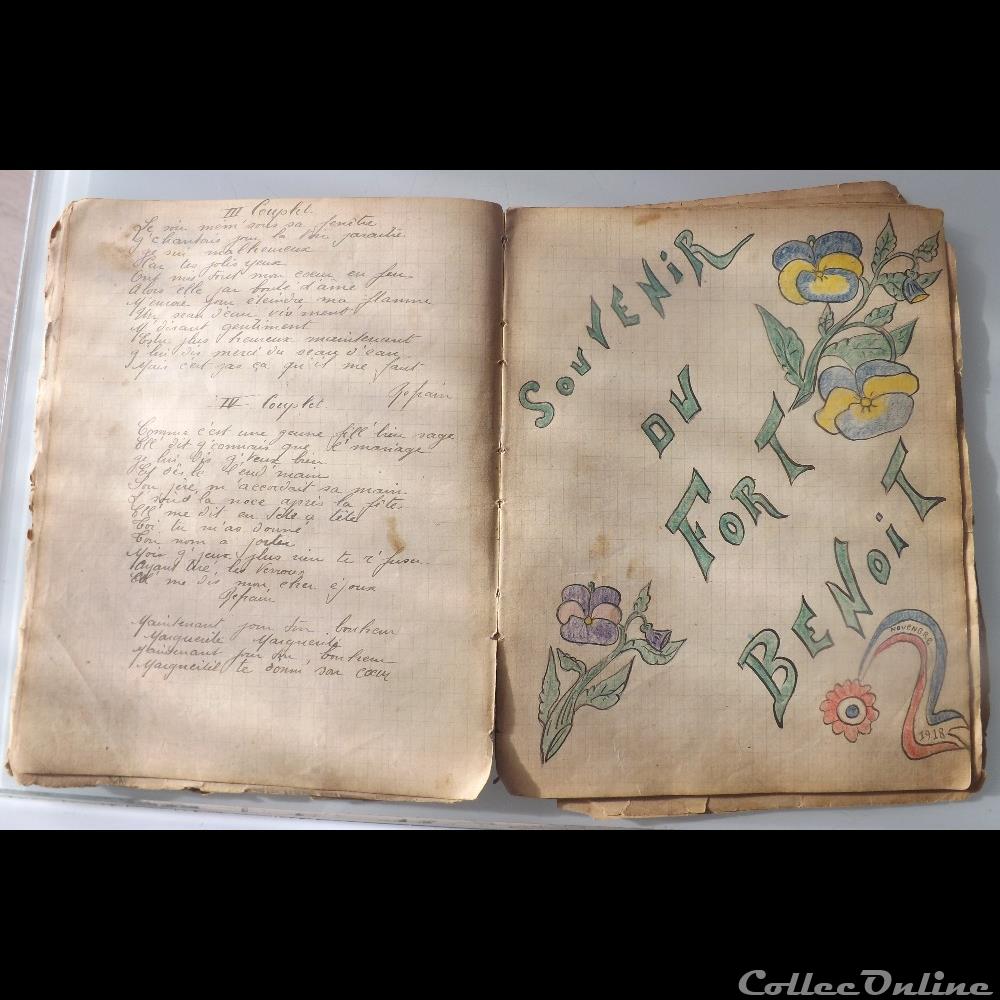 III Couplet
Je vins mem' sous sa fenêtre
J' chantais pour la faire paraitre
je suis malheureux
Par tes jolis yeux
Ont mis tout mon coeur en feu
Alors elle par bonté d'âme
M'envoie pour éteindre ma flamme
Un seau d'eau viv'ment
M' disant gentiment
Es-tu plus heureux maintenant
j' lui dis merci du seau d'eau
Mais c'est pas ça qu'il me faut
Refrain
IV Couplet
Comme c'est une jeune fill' bien sage
Ell' dit j' connais que l' mariage
je lui dis j' veux bien
Et dès le lend'main
Son père m'accordait sa main
la noce après la fête
Ell' me dit en tête a tête
Toi tu m'as donné
Ton nom a porter
Moi j' peux plus rien te r'fuser
Ayant tiré les verrous
Ell' me dis mon cher époux
Refrain
Maintenant pour ton bonheur
Marguerite Marguerite
Maintenant pour ton bonheur
Marguerite te donne son coeur
SOUVENIR
DU
FORT
BENOIT
NOVENBRE
1918
ColleeOnline